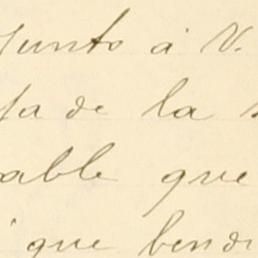 junto á V.
de la
able que
que bendi